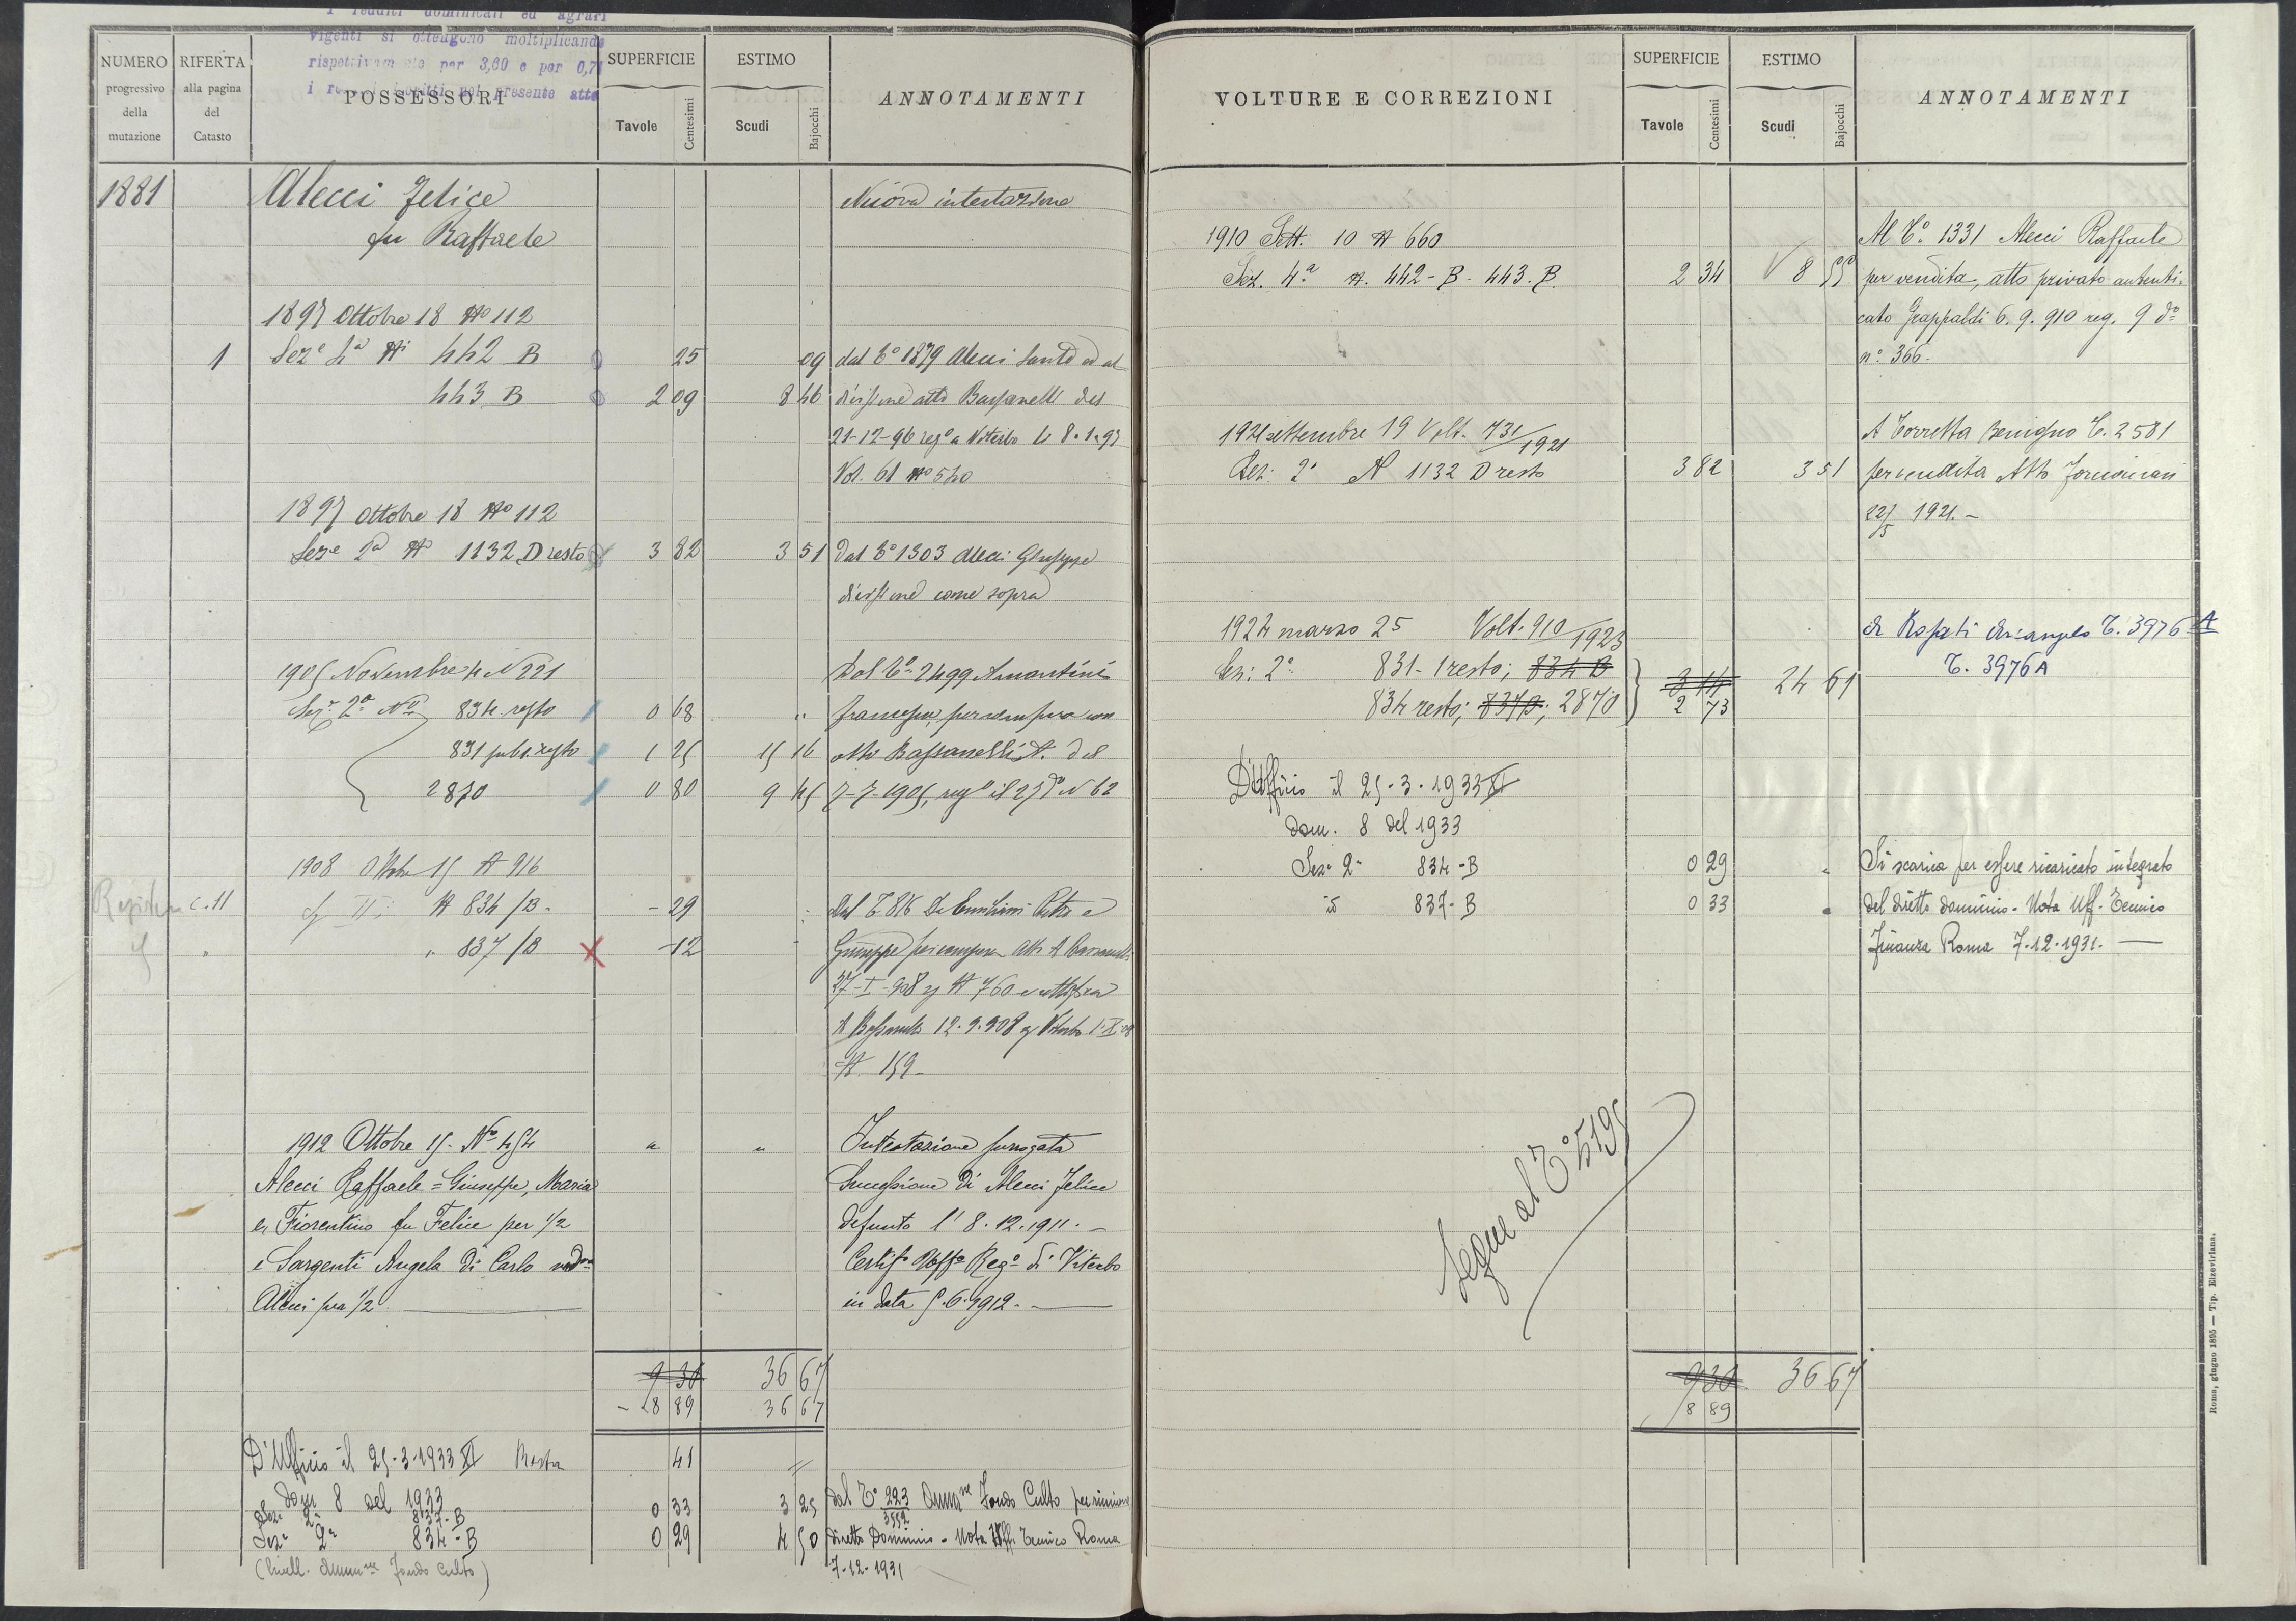 I redditi dominicali ed agrari
vigenti si ottengono moltiplicando
rispettivamente per 3,60 e per 0,7
i redditi iscritti nel presente atto
NUMERO progressivo della mutazione
RIFERTA alla pagina del Catasto
POSSESSORI
SUPERFICIE
Tavole Centesimi
ESTIMO
Scudi Bajocchi
ANNOTAMENTI
1881 Alecci Felice Nuova intestazione
fu Raffaele
1897 Ottobre 18 No 112
1 Seze 4a Ni 442 B 25 09 dal To 1879 Alecci Santo ed al
443 B 2 09 8 46 divisione atto Bassanelli del
21-12-96 rego a Viterbo li 8.1.97
Vol. 61 No 540
1897 Ottobre 18 No 112
Seze 2a No 1132 D resto 3 82 3 51 Dal To 1303 Alecci Giuseppe
divisione come sopra
1905 Novembre 4 N 221 Dal To 2499 Amantini
Seze 2a No 834 resto 0 68 " Francesco, per compra con
831 sub 1. resto 1 25 15 16 atto Bassanelli A. del
2870 0 80 9 45 7-7-1905, rego il 25 do N 62
1908 Ottobre 15 N 916
Registro c. 11 Sez II; N 834/B - 29 Dal T. 816 De Emiliani Pietro e
" 837/B - 12 Giuseppe per compra atto A Bassanelli
27-I-908 N 760 e rettifica
A Bassanelli 12.9.908 Viterbo 1.X.08
N 159-
1912 Ottobre 15. No 454 " " Intestazione surrogata
Alecci Raffaele = Giuseppe, Maria Successione di Alecci Felice
e Fiorentino fu Felice per 1/2 defunto l' 8.12.1911. -
e Sargenti Angela di Carlo veda Certifo Uffo Rego di Viterbo
Alecci per 1/2. in data 5.6.1912. -
9 30 36 67
8 89 36 67
D'Ufficio il 25-3-1933 XI Resta 41 "
dom 8 del 1933
Seza 2a 837-B 0 33 3 25 Dal To 223/3552 Ammne Fondo Culto per riunione
Seza 2a 834-B 0 29 4 50 diretto Dominio - Nota Uff. Tecnico Roma
(livell. Ammne Fondo Culto) 7-12-1931
VOLTURE E CORREZIONI
SUPERFICIE
Tavole Centesimi
ESTIMO
Scudi Bajocchi
ANNOTAMENTI
1910 Sett. 10 N 660 Al To. 1331 Alecci Raffaele
Sez. 4a N. 442-B - 443.B. 2 34 8 55 per vendita, atto privato autenti-
cato Grappaldi 6.9.910 reg. 9 do
no. 366.
1921 settembre 19 Volt. 731/1921 A Torretta Benigno T. 2581
Sez: 2a N 1132 D resto 3 82 3 51 per vendita Atto
22/5 1921. -
1924 marzo 25 Volt. 910/1923 A Rosati Arcangelo T. 3976 A
Sez: 2a 831-1 resto; 834 B T. 3976A
834 resto; 837B; 2870 3 14 24 61
2 73
D'Ufficio il 25-3-1933 XI
dom. 8 del 1933
Seza 2a 834-B 0 29 " Si scarica per essere ricaricato integrato
id 837-B 0 33 " del diretto dominio - Nota Uff. Tecnico
Finanza Roma 7-12-1931. -
Segue al To 5195
930 36 67
8 89
Roma, giugno 1895 — Tip. Elzeviriana.